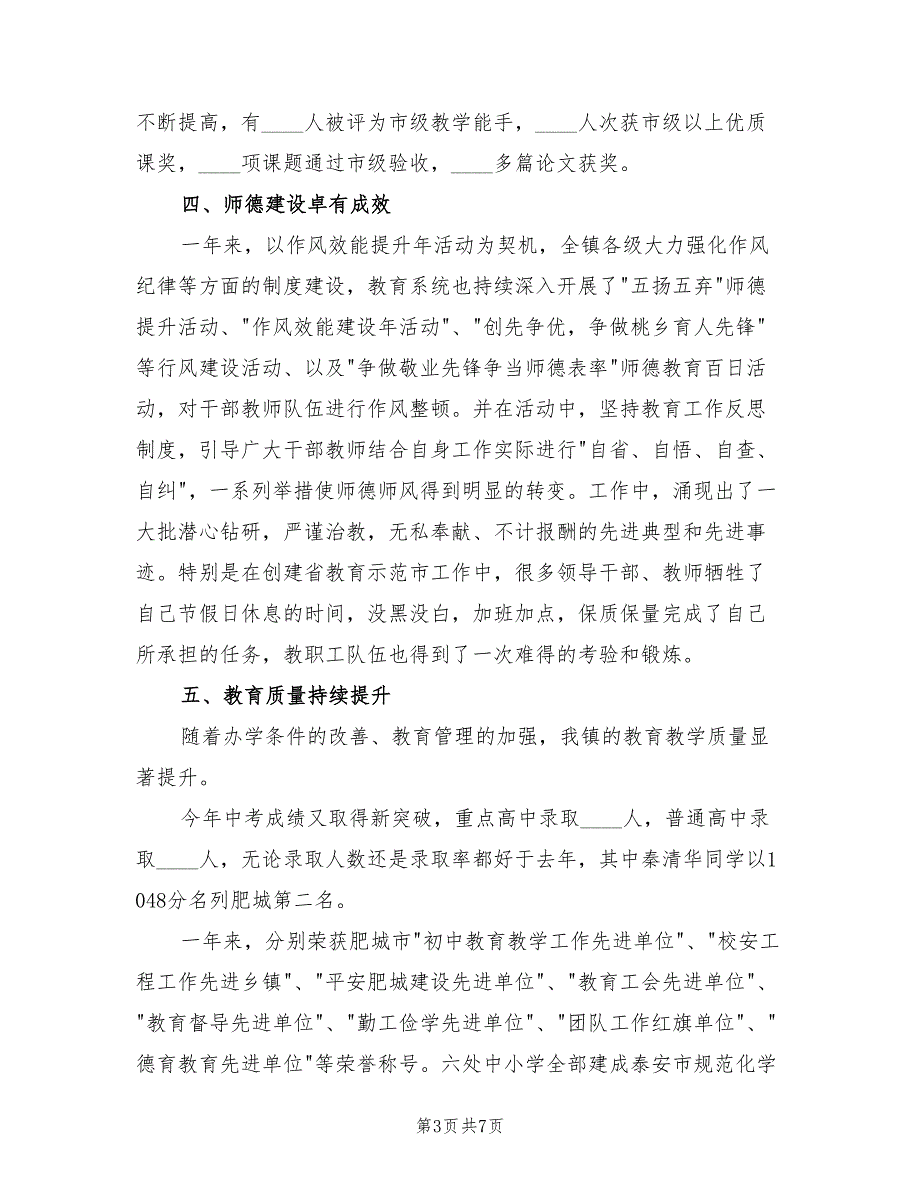 不断提高，有____人被评为市级教学能手，____人次获市级以上优质
课奖，____项课题通过市级验收，____多篇论文获奖。
四、师德建设卓有成效
一年来，以作风效能提升年活动为契机，全镇各级大力强化作风
纪律等方面的制度建设，教育系统也持续深入开展了"五扬五弃"师德
提升活动、"作风效能建设年活动"、"创先争优，争做桃乡育人先锋"
等行风建设活动、以及"争做敬业先锋争当师德表率"师德教育百日活
动，对干部教师队伍进行作风整顿。并在活动中，坚持教育工作反思
制度，引导广大干部教师结合自身工作实际进行"自省、自悟、自查、
自纠"，一系列举措使师德师风得到明显的转变。工作中，涌现出了一
大批潜心钻研，严谨治教，无私奉献、不计报酬的先进典型和先进事
迹。特别是在创建省教育示范市工作中，很多领导干部、教师牺牲了
自己节假日休息的时间，没黑没白，加班加点，保质保量完成了自己
所承担的任务，教职工队伍也得到了一次难得的考验和锻炼。
五、教育质量持续提升
随着办学条件的改善、教育管理的加强，我镇的教育教学质量显
著提升。
今年中考成绩又取得新突破，重点高中录取____人，普通高中录
取____人，无论录取人数还是录取率都好于去年，其中秦清华同学以1
048分名列肥城第二名。
一年来，分别荣获肥城市"初中教育教学工作先进单位"、"校安工
程工作先进乡镇"、"平安肥城建设先进单位"、"教育工会先进单位"、
"教育督导先进单位"、"勤工俭学先进单位"、"团队工作红旗单位"、"
德育教育先进单位"等荣誉称号。六处中小学全部建成泰安市规范化学
第3页共7页